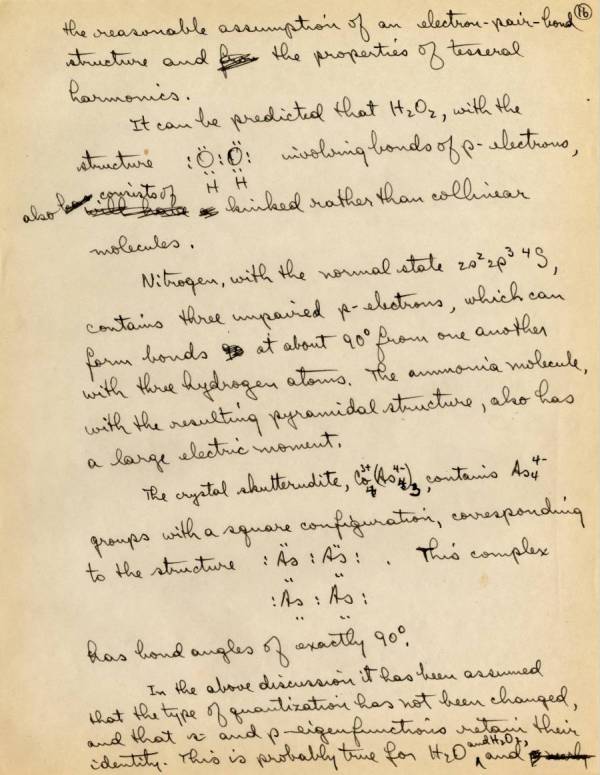 16
the reasonable assumption of an electron-pair-bond
structure and the properties of tesseral
harmonics.
It can be predicted that H2O2, with the
structure :Ö:Ö: involving bonds of p-electrons,
H H
also consists of kinked rather than collinear
molecules.
Nitrogen, with the normal state 2s² 2p³ ⁴S,
contains three unpaired p-electrons, which can
form bonds at about 90° from one another
with three hydrogen atoms. The ammonia molecule,
with the resulting pyramidal structure, also has
a large electric moment.
The crystal skutterudite, Co₄³⁺(As₄⁴⁻)₃, contains As₄⁴⁻
groups with a square configuration, corresponding
to the structure :As:As: . This complex
:As:As:
has bond angles of exactly 90°.
In the above discussion it has been assumed
that the type of quantization has not been changed,
and that s- and p-eigenfunctions retain their
identity. This is probably true for H2O and H2O2, and